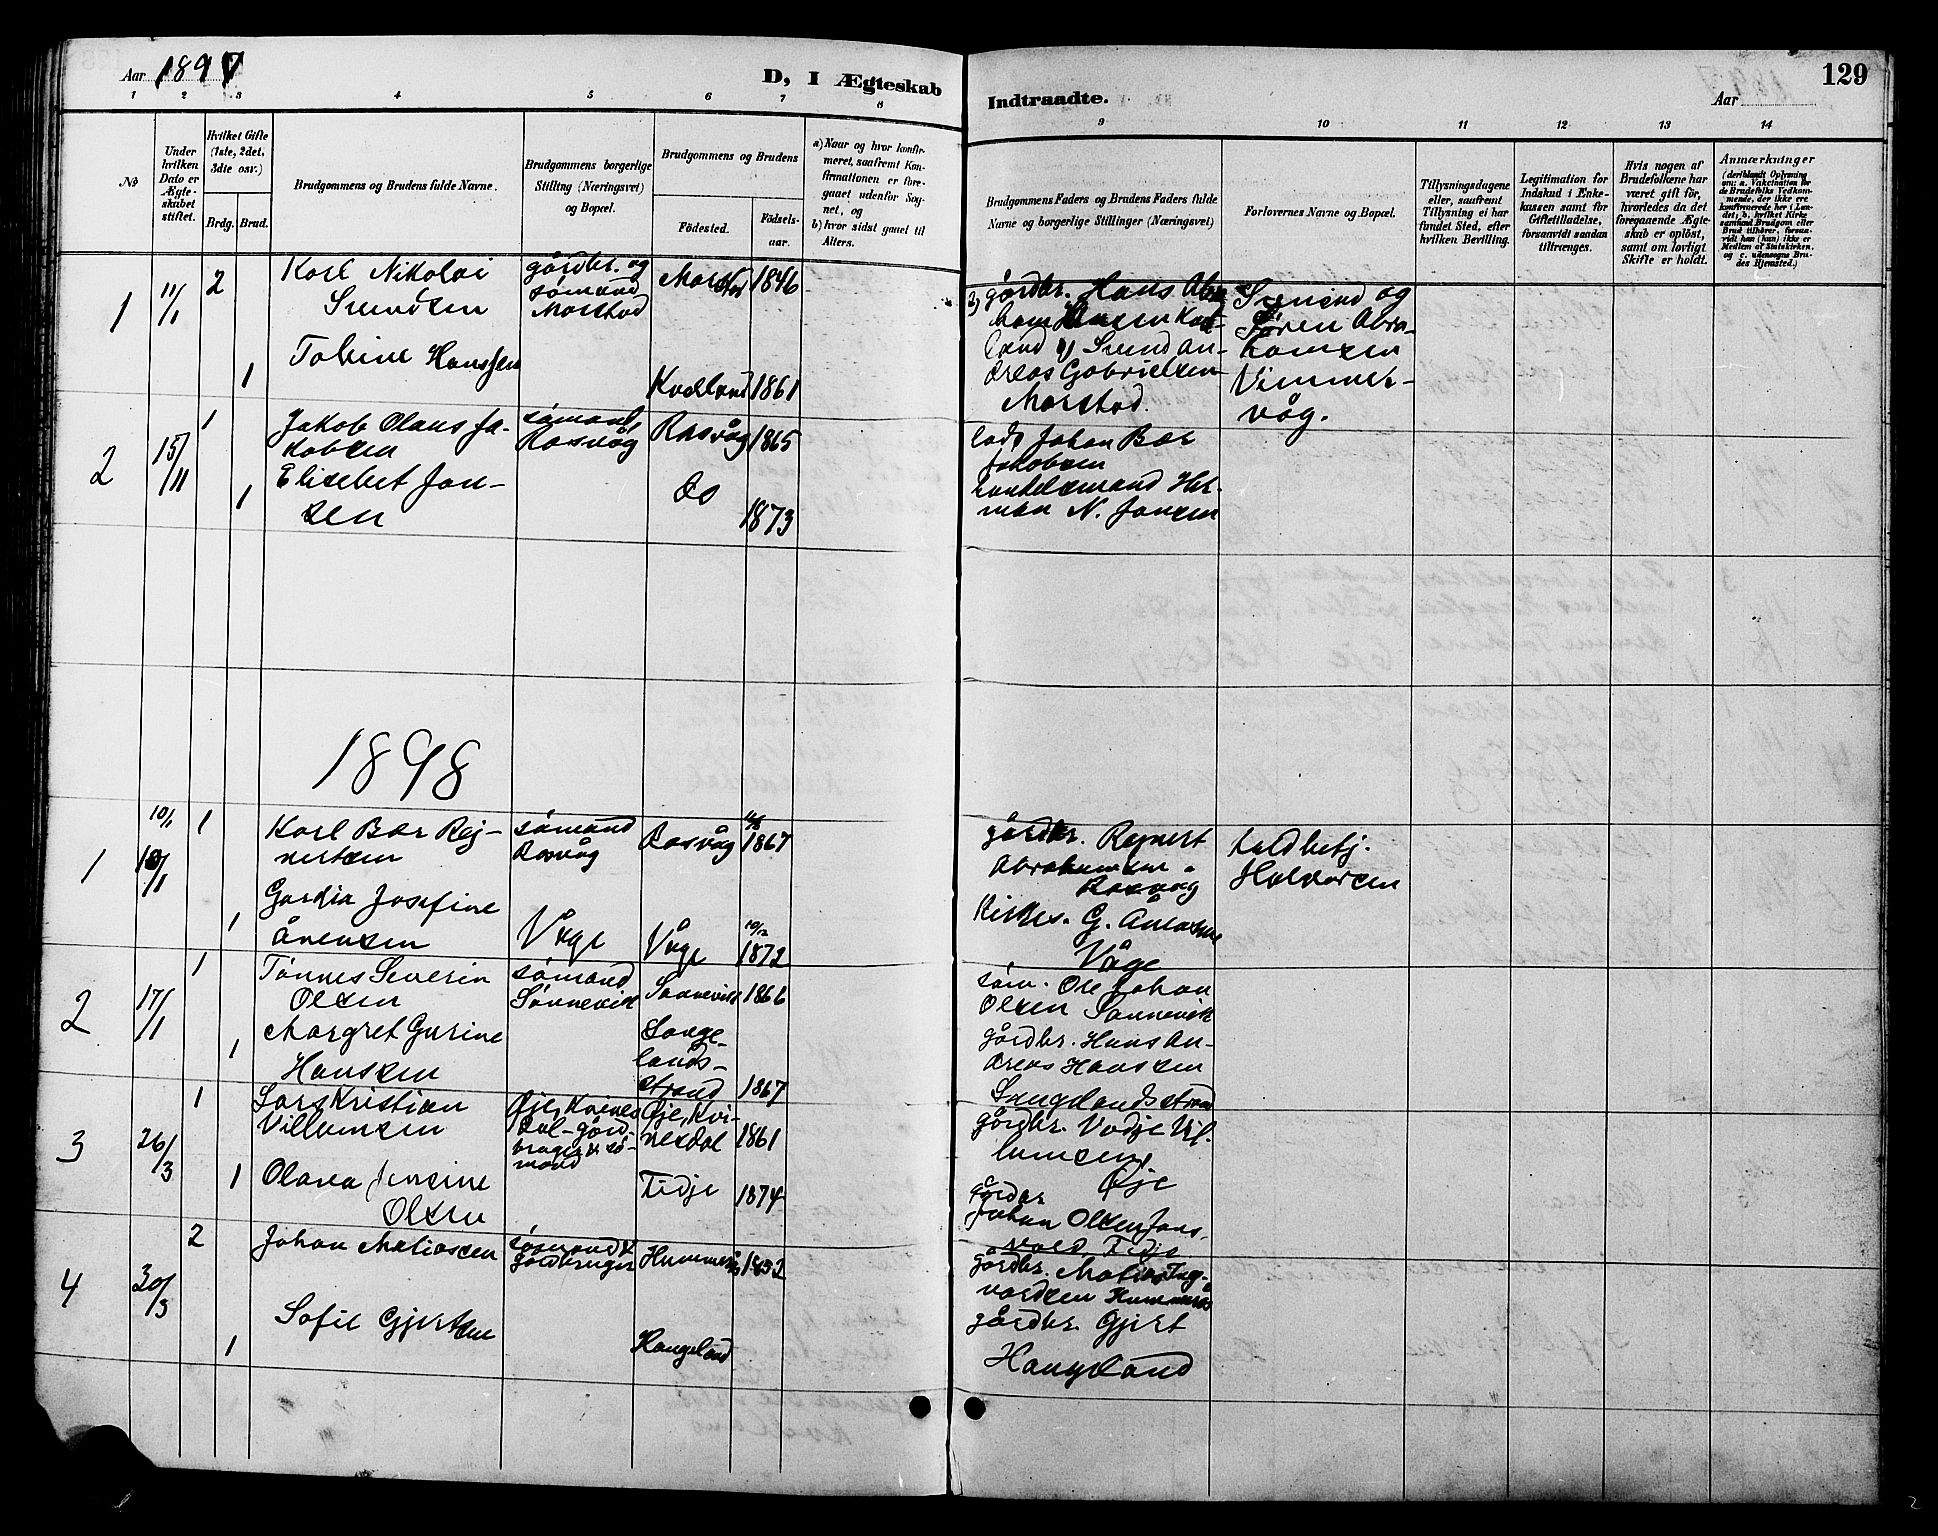 Aar 1897
D, I Ægteskab
Indtraadte.
Aar
129
1 2 3 4 5 6 7 8 9 10 11 12 13 14
No
Under hvilken Dato er Ægteskabet stiftet.
Hvilket Gifte (1ste, 2det, 3dte osv.)
Brdg. Brud.
Brudgommens og Brudens fulde Navne.
Brudgommens borgerlige Stilling (Næringsvei) og Bopæl.
Brudgommens og Brudens
Fødested.
Fødselsaar.
a) Naar og hvor konfirmeret, saafremt Konfirmationen er foregaaet udenfor Sognet, og
b) hvor sidst gaaet til Alters.
Brudgommens Faders og Brudens Faders fulde Navne og borgerlige Stillinger (Næringsvei)
Forlovernes Navne og Bopæl.
Tillysningsdagene eller, saafremt Tillysning ei har fundet Sted, efter hvilken Bevilling.
Legitimation for Indskud i Ænkekassen samt for Giftetilladelse, forsaavidt saadan tiltrænges.
Hvis nogen af Brudefolkene har været gift før, hvorledes da det foregaaende Ægteskab er opløst, samt om lovligt Skifte er holdt.
Anmærkninger (deriblandt Oplysning om: a. Vakcination for de Brudefolks Vedkommende, der ikke ere konfirmerede her i Landet, b. hvilket Kirkesamfund Brudgom eller Brud tilhører, forsaavidt han (hun) ikke er Medlem af Statskirken, og c. udensogns Brudes Hjemsted.)
1 11/1 2 Karl Nikolai
Svendsen
gårdbr. og
sømand
Marstad
Marstad 1846
Tobine Hanssen
1 Kvelland 1861
gårdbr. Hans Abra
ham Hansen Kvel
land 1) Svend An-
dreas Gabrielsen
Marstad.
Svend og
Søren Abra-
hamsen
Vimmer-
våg.
2 15/11 1 Jakob Olaus Ja-
kobsen
sømand,
Rasvåg
Rasvåg 1865
1 Elisebet Jan-
sen
do
1873
lods Johan Bær
Jakobsen
handelsmand Her-
man N. Jansen
1898
10/1 1 Karl Bær Rej-
nertsen
sømand
Rasvåg
Rasvåg 1867
1 10/1
Gardia Josefine
1 Ånensen
Våge
Våge 10/12 1872
gårdbr. Rejnert
Abrahamsen
Rasvåg
Kirkes. G. Ånensen
Våge
toldbetj.
Halvorsen
2 17/1 1 Tønnes Severin
Olsen
sømand
Sannevik
Sannevik 1866
1 Margret Gurine
Hansen
Lange-
lands-
strand 1867
søm. Ole Johan
Olsen Sannevik
gårdbr. Hans An-
dreas Hansen
Langelandsstrand
3 26/3 1 Lars Kristian
Villumsen
Øje, Kvines
dal - gård-
bruger & sø-
mand
Øje, Kvi-
nesdal 1861
1 Olava Jensine
Olsen
Tidje 1874
gårdbr. Vadje Vil-
lumsen,
Øje
gårdbr
Johan Olsen Jans-
vold, Tidje
4 30/3 2 Johan Matiassen
sømand &
gårdbruger
Hummerås 1852
Sofie Gjertsen
1 Haugeland
gårdbr. Matias Tag-
vordsen Hummerås
gårdbr. Gjert
Haugeland